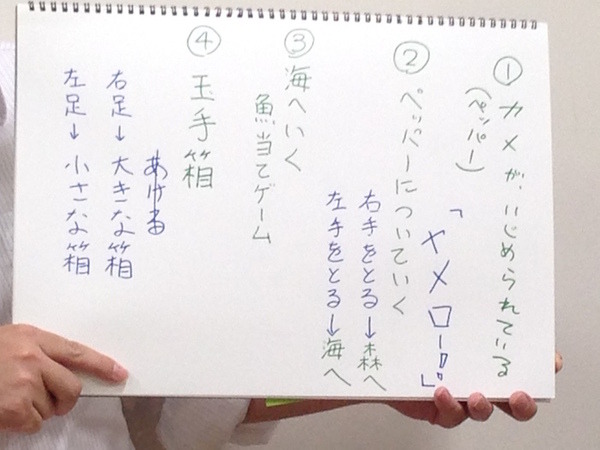 ①カメが、いじめられている
(ペッパー)
「ヤメロー!」
②ペッパーについていく
右手をとる→森へ
左手をとる→海へ
③海へいく
魚当てゲーム
④玉手箱
あける
右足→大きな箱
左足→小さな箱